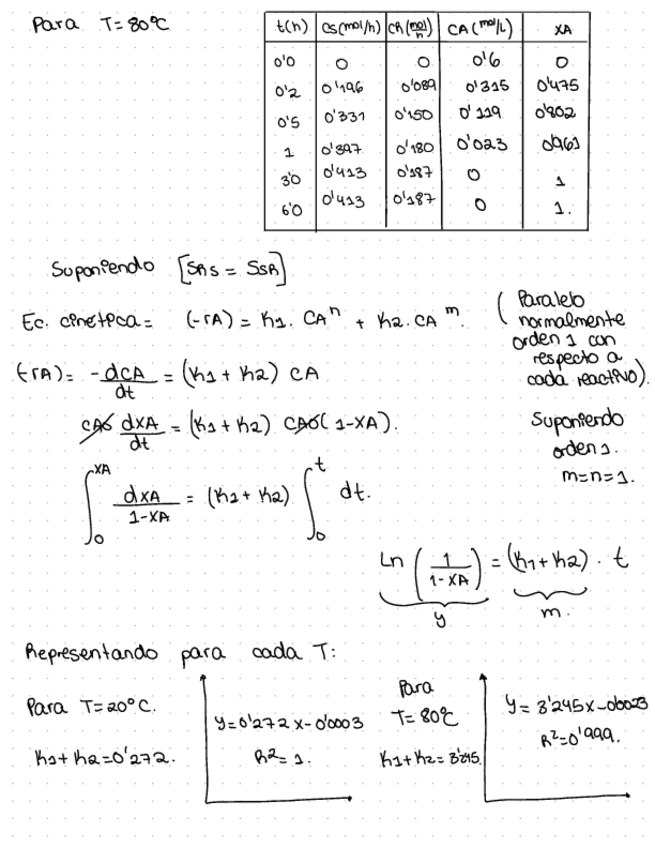 Para T=80ºC
t(h) Cs(mol/h) CR(mol/h) CA(mol/L) XA
0'0 0 0 0'6 0
0'2 0'196 0'089 0'315 0'475
0'5 0'331 0'150 0'119 0'802
1 0'397 0'180 0'023 0'961
3'0 0'413 0'187 0 1
6'0 0'413 0'187 0 1.
Suponiendo [SRS = SSR]
Ec. cinética = (-rA) = K1. CA^n + K2. CA^m.
(Paralelo
normalmente
orden 1 con
respecto a
cada reactivo).
(-rA) = -dCA/dt = (K1 + K2) CA
CA0 dXA/dt = (K1 + K2) CA0 (1-XA).
Suponiendo
orden 1.
m=n=1.
∫0^XA dXA/1-XA = (K1 + K2) ∫0^t dt.
Ln (1/1-XA) = (K1 + K2) · t
y m.
Representando para cada T:
Para T=20ºC.
K1 + K2 = 0'272.
y=0'272x-0'0003
R²=1.
Para
T=80ºC
K1 + K2 = 3'245.
y=3'245x-0'0023
R²=0'999.